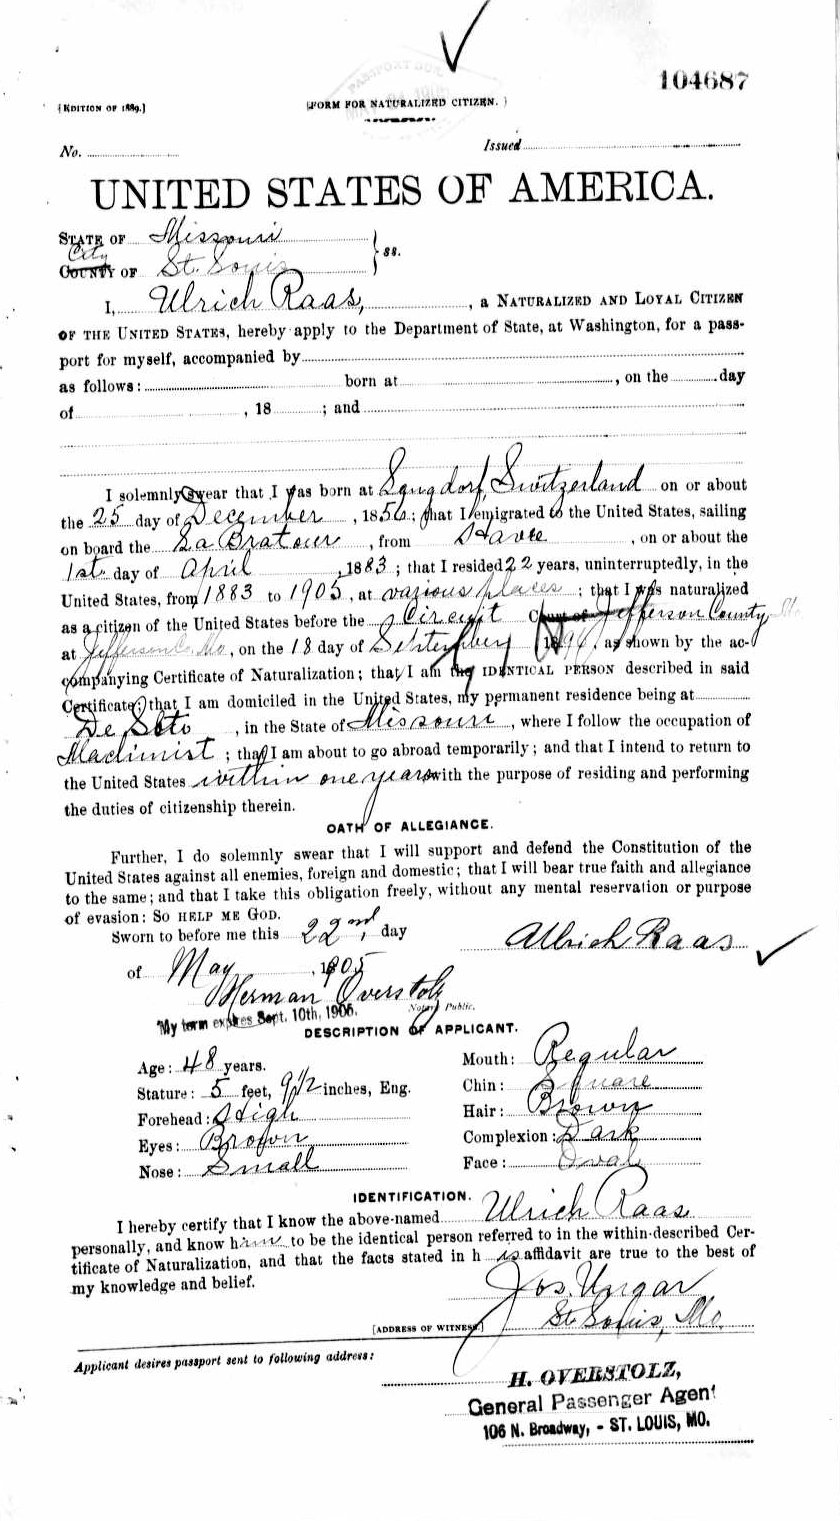 104687
[EDITION OF 1889.]
[FORM FOR NATURALIZED CITIZEN.]
No.
Issued
UNITED STATES OF AMERICA.
STATE OF Missouri
City
COUNTY OF St. Louis
} ss.
I, Ulrich Raas, , a NATURALIZED AND LOYAL CITIZEN
OF THE UNITED STATES, hereby apply to the Department of State, at Washington, for a pass-
port for myself, accompanied by
as follows: born at , on the day
of , 18 ; and
I solemnly swear that I was born at Langdorf, Switzerland on or about
the 25 day of December , 1856; that I emigrated to the United States, sailing
on board the La Bratour , from Havre , on or about the
1st day of April , 1883 ; that I resided 22 years, uninterruptedly, in the
United States, from 1883 to 1905, at various places ; that I was naturalized
as a citizen of the United States before the Circuit Court of Jefferson County,
at Jefferson Co. Mo, on the 18 day of September , 1896, as shown by the ac-
companying Certificate of Naturalization; that I am the IDENTICAL PERSON described in said
Certificate; that I am domiciled in the United States, my permanent residence being at
De Soto , in the State of Missouri , where I follow the occupation of
Machinist ; that I am about to go abroad temporarily; and that I intend to return to
the United States within one year with the purpose of residing and performing
the duties of citizenship therein.
OATH OF ALLEGIANCE.
Further, I do solemnly swear that I will support and defend the Constitution of the
United States against all enemies, foreign and domestic; that I will bear true faith and allegiance
to the same; and that I take this obligation freely, without any mental reservation or purpose
of evasion: SO HELP ME GOD.
Sworn to before me this 22nd, day
Ulrich Raas
of May , 1905
Herman Overstolz
Notary Public.
My term expires Sept. 10th, 1906.
DESCRIPTION OF APPLICANT.
Age: 48 years.
Mouth: Regular
Stature: 5 feet, 9 1/2 inches, Eng.
Chin: Square
Forehead: High
Hair: Brown
Eyes: Brown
Complexion: Dark
Nose: Small
Face: Oval
IDENTIFICATION.
I hereby certify that I know the above-named Ulrich Raas
personally, and know him to be the identical person referred to in the within-described Cer-
tificate of Naturalization, and that the facts stated in his affidavit are true to the best of
my knowledge and belief.
Jos. Ungar
[ADDRESS OF WITNESS.] St. Louis, Mo.
Applicant desires passport sent to following address:
H. OVERSTOLZ,
General Passenger Agent
106 N. Broadway, - ST. LOUIS, MO.